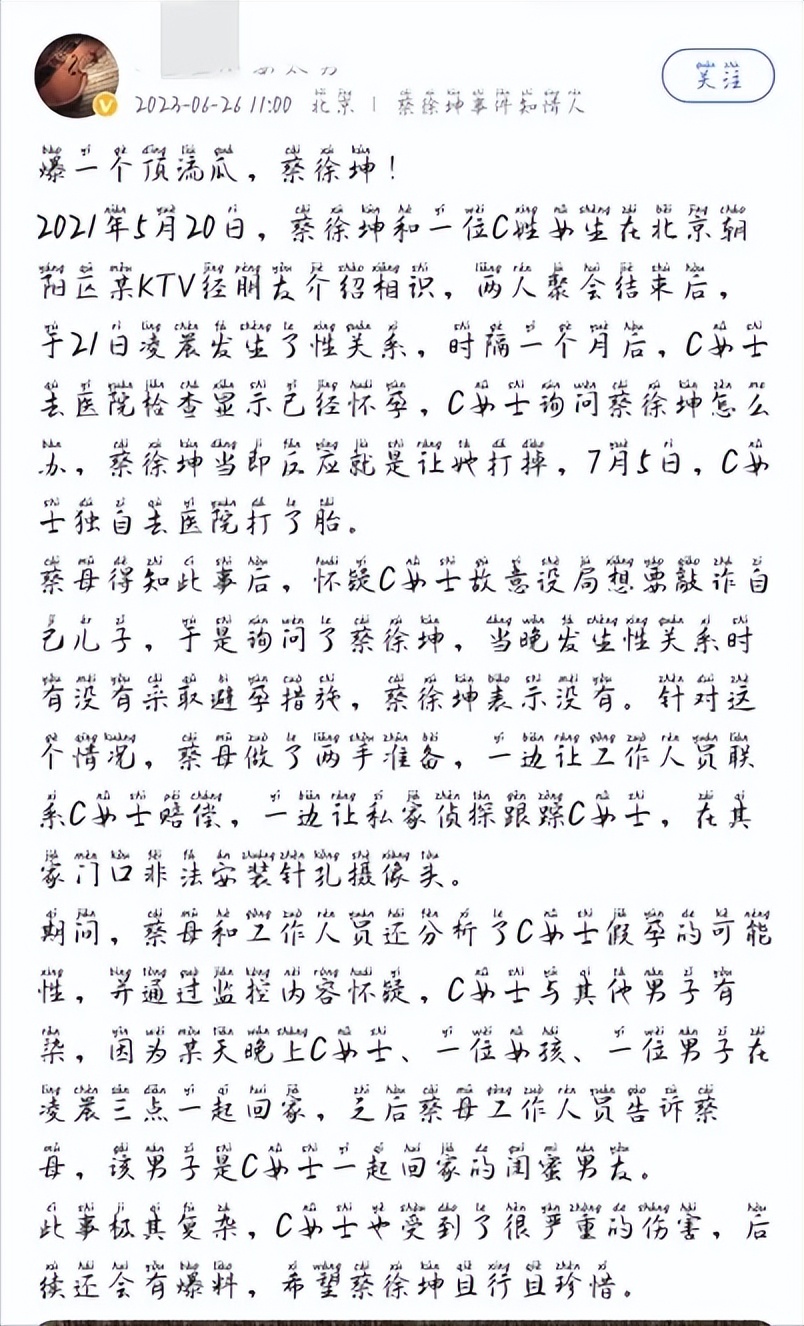 2023-06-26 11:00 北京 | 蔡徐坤事件知情人
关注
爆一个顶流瓜，蔡徐坤！
2021年5月20日，蔡徐坤和一位C姓女生在北京朝
阳区某KTV经朋友介绍相识，两人聚会结束后，
于21日凌晨发生了性关系，时隔一个月后，C女士
去医院检查显示已经怀孕，C女士询问蔡徐坤怎么
办，蔡徐坤当即反应就是让她打掉，7月5日，C女
士独自去医院打了胎。
蔡母得知此事后，怀疑C女士故意设局想要敲诈自
己儿子，于是询问了蔡徐坤，当晚发生性关系时
有没有采取避孕措施，蔡徐坤表示没有。针对这
个情况，蔡母做了两手准备，一边让工作人员联
系C女士赔偿，一边让私家侦探跟踪C女士，在其
家门口非法安装针孔摄像头。
期间，蔡母和工作人员还分析了C女士假孕的可能
性，并通过监控内容怀疑，C女士与其他男子有
染，因为某天晚上C女士、一位女孩、一位男子在
凌晨三点一起回家，之后蔡母工作人员告诉蔡
母，该男子是C女士一起回家的闺蜜男友。
此事极其复杂，C女士也受到了很严重的伤害，后
续还会有爆料，希望蔡徐坤且行且珍惜。